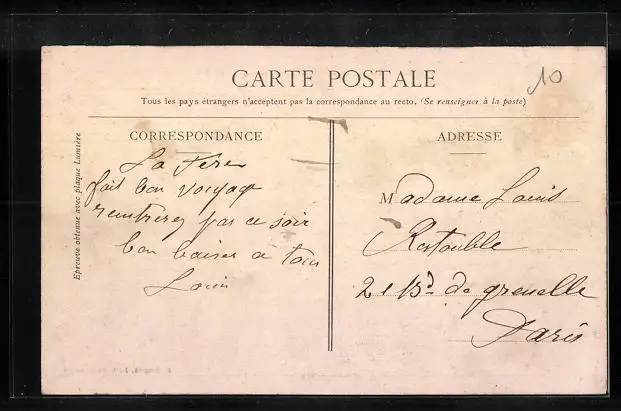 10
CARTE POSTALE
Tous les pays étrangers n'acceptent pas la correspondance au recto. (Se renseigner à la poste)
CORRESPONDANCE
La Fère
fait bon voyage
rentrerez pas ce soir
bon baiser a tous
Louis
ADRESSE
Madame Louis
Rastouble
21 Bd de grenelle
Paris
Epreuve obtenue avec plaque Lumière